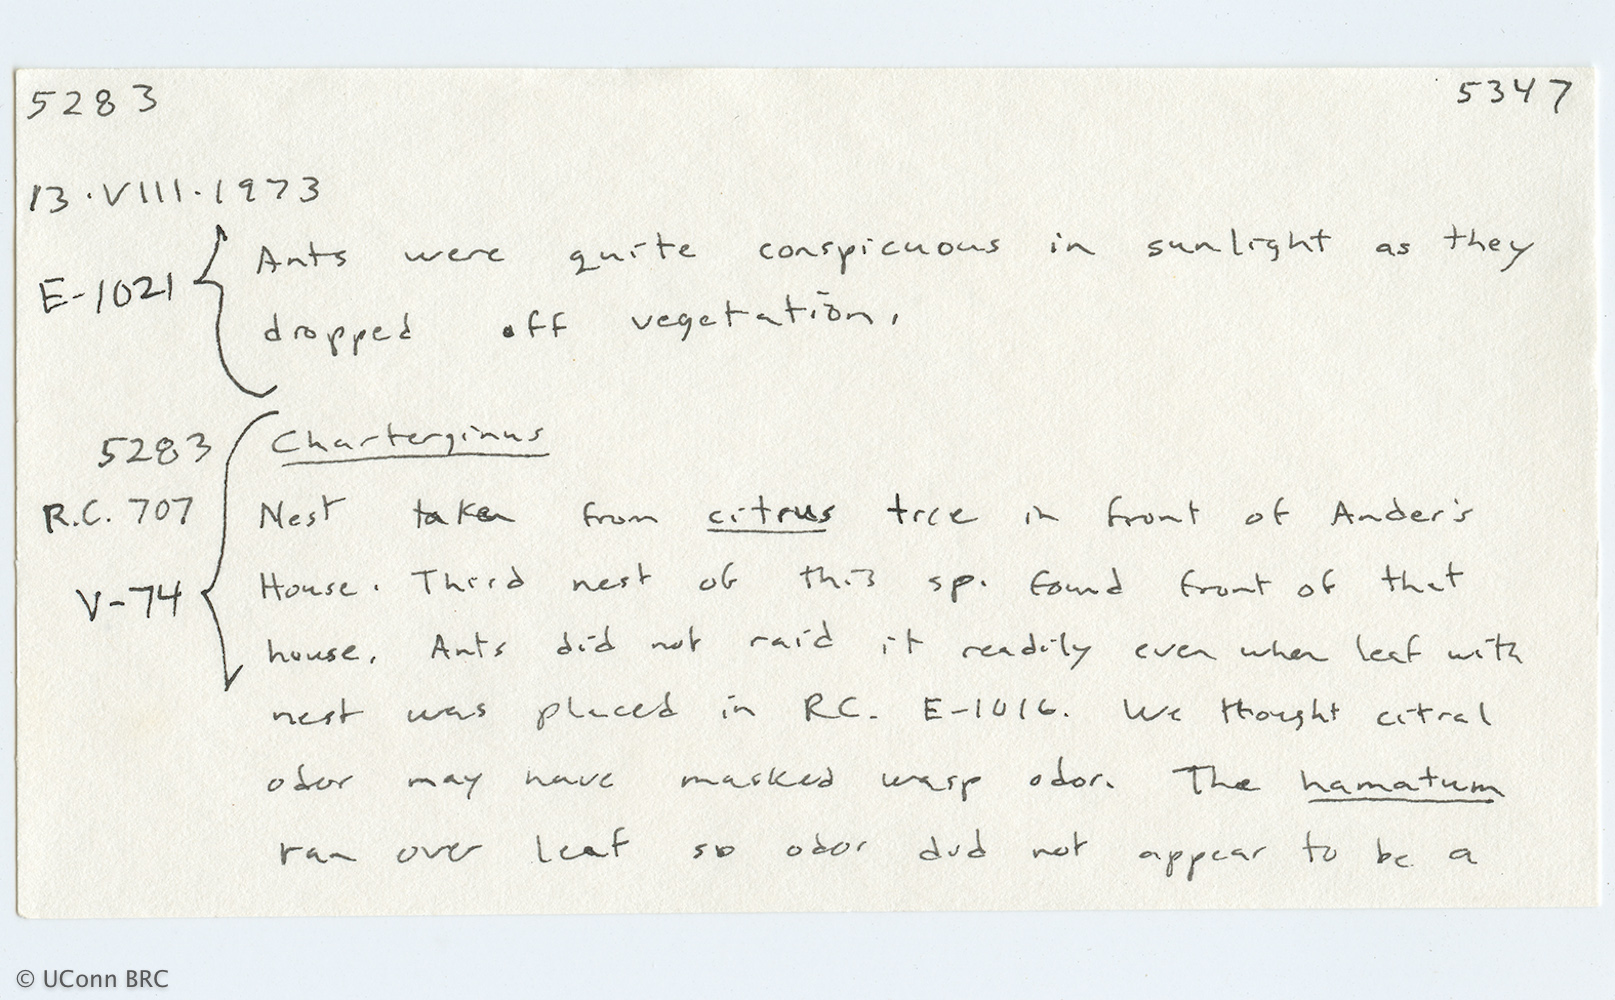 5283 5347
13.VIII.1973
E-1021 { Ants were quite conspicuous in sunlight as they
dropped off vegetation.
5283 { Charterginus
R.C. 707 Nest taken from citrus tree in front of Ander's
V-74 House. Third nest of this sp. found front of that
house. Ants did not raid it readily even when leaf with
nest was placed in RC. E-1016. We thought citral
odor may have masked wasp odor. The hamatum
ran over leaf so odor did not appear to be a
© UConn BRC